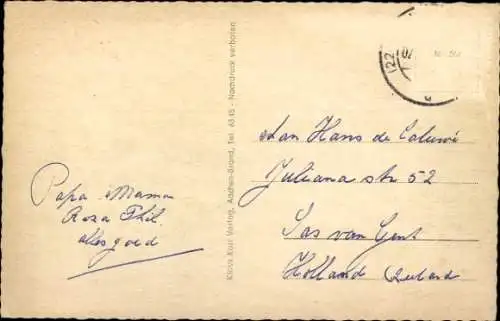 Papa Mama
Roza Phil.
alles goed
Klaus Kurt Verlag, Aachen-Brand, Tel. 6345 - Nachdruck verboten
Aan Hans de Caluwé
Juliana str 52
Sas van Gent
Holland Zeeland